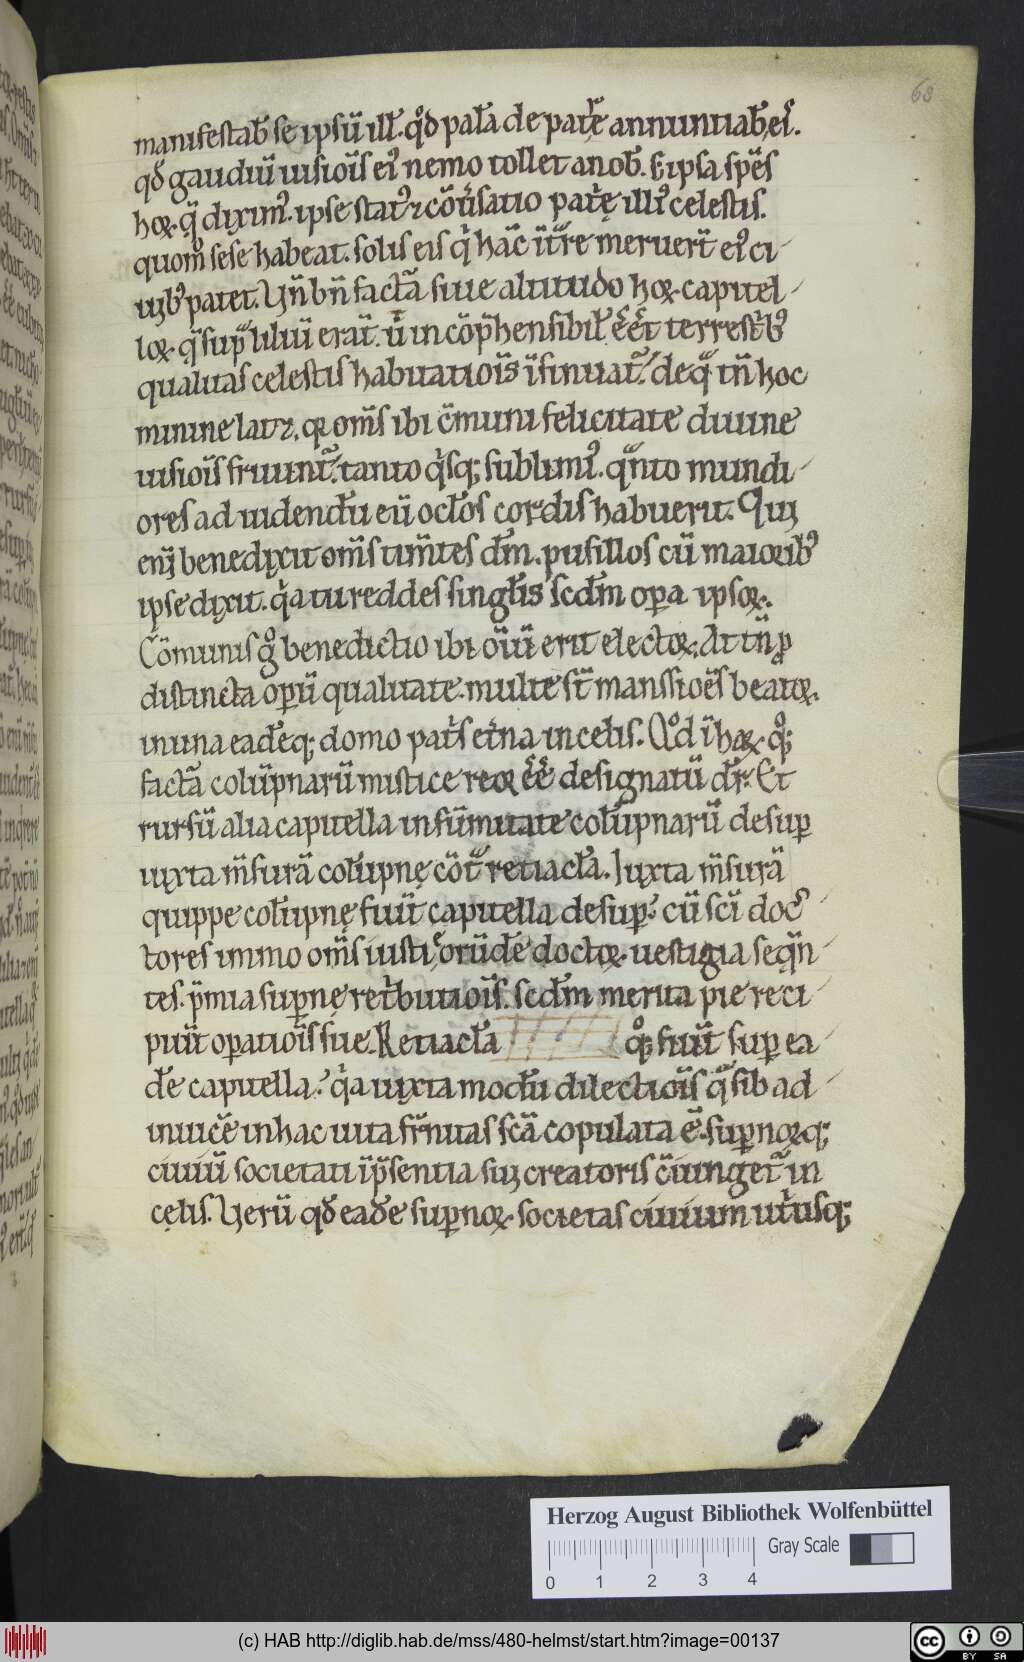 68
manifestab̄ se ipsū ill̄. qd̄ pal̄a de patrę annuntiab̄ eiꝰ.
qđ gaudiū uisiōis eiꝰ nemo tollet a nob̄. Et ipsa spēs
hoꝝ q̄ diximꝰ. ipse statꝰ ⁊ cōūsatio patrię illiꝰ celestis.
quom̊ sese habeat. solis eis qⁱ hāc īt̄re meruer̄t eiꝰ ci-
uibꝰ patet. Vn̄ bn̄ fact̄a siue altitudo hoꝝ capitel-
loꝝ q̄si sup̄ liliū erat̄. ū̄ incōp̄hensibil̄ eē et terrestⁱbꝰ
qualitas celestis habitatiōis īsinuat̄. de q̄ tn̄ hoc
minime latꝫ, qꝛ om̄s ibi c̄muni felicitate diuine
uisiōis fruunt̄. tanto qⁱsqꝫ sublimiꝰ. q̄nto mundi-
ores ad uidendū eū ocl̄os cordis habuerit. Qui
eni benedixit om̄s tim̄tes dn̄m. pusillos cū maioribꝰ
ipse dixit. qⁱa tu reddes singl̄is scd̄m opa ipsoꝝ.
Cōmunis g̊ benedictio ibi oīū erit electoꝝ. At tn̄ ꝓ
distincta opū qualitate. multe st̄ mansiōes beatoꝝ.
in una eadēqꝫ domo patⁱs et̄na in celis. Qd̄ ī haꝝ qꝫ
fact̄a colūpnarū mistice reoꝝ eē designatū dr̄. Et
rursū alia capitella in sūmitate colūpnarū desup
iuxta m̄surā colūpnę cōt̄ retiacl̄a. Iuxta m̄surā
quippe colūpnę fuit̄ capitella desup. cū sc̄i doc-
tores immo om̄s iusti, orūdē doctoꝝ uestigia seq̄n-
tes. p̄mia supnę ret̄butiōis. scd̄m merita pie reci-
piūt opatiōis sue. Retiacl̄a qꝫ fuit̄ sup ea-
dē capitella. qⁱa iuxta modū dilectiōis q̄ sib ad-
inuicē in hac uita fr̄nitas sc̄a copulata ē. supnoꝝqꝫ
ciuiū societati ī p̄sentia sui creatoris c̄iunget̄ in
cęlis. Verū qđ eadē supnoꝝ societas ciuium utⁱusqꝫ
Herzog August Bibliothek Wolfenbüttel
Gray Scale
0 1 2 3 4
(c) HAB http://diglib.hab.de/mss/480-helmst/start.htm?image=00137
cc BY SA